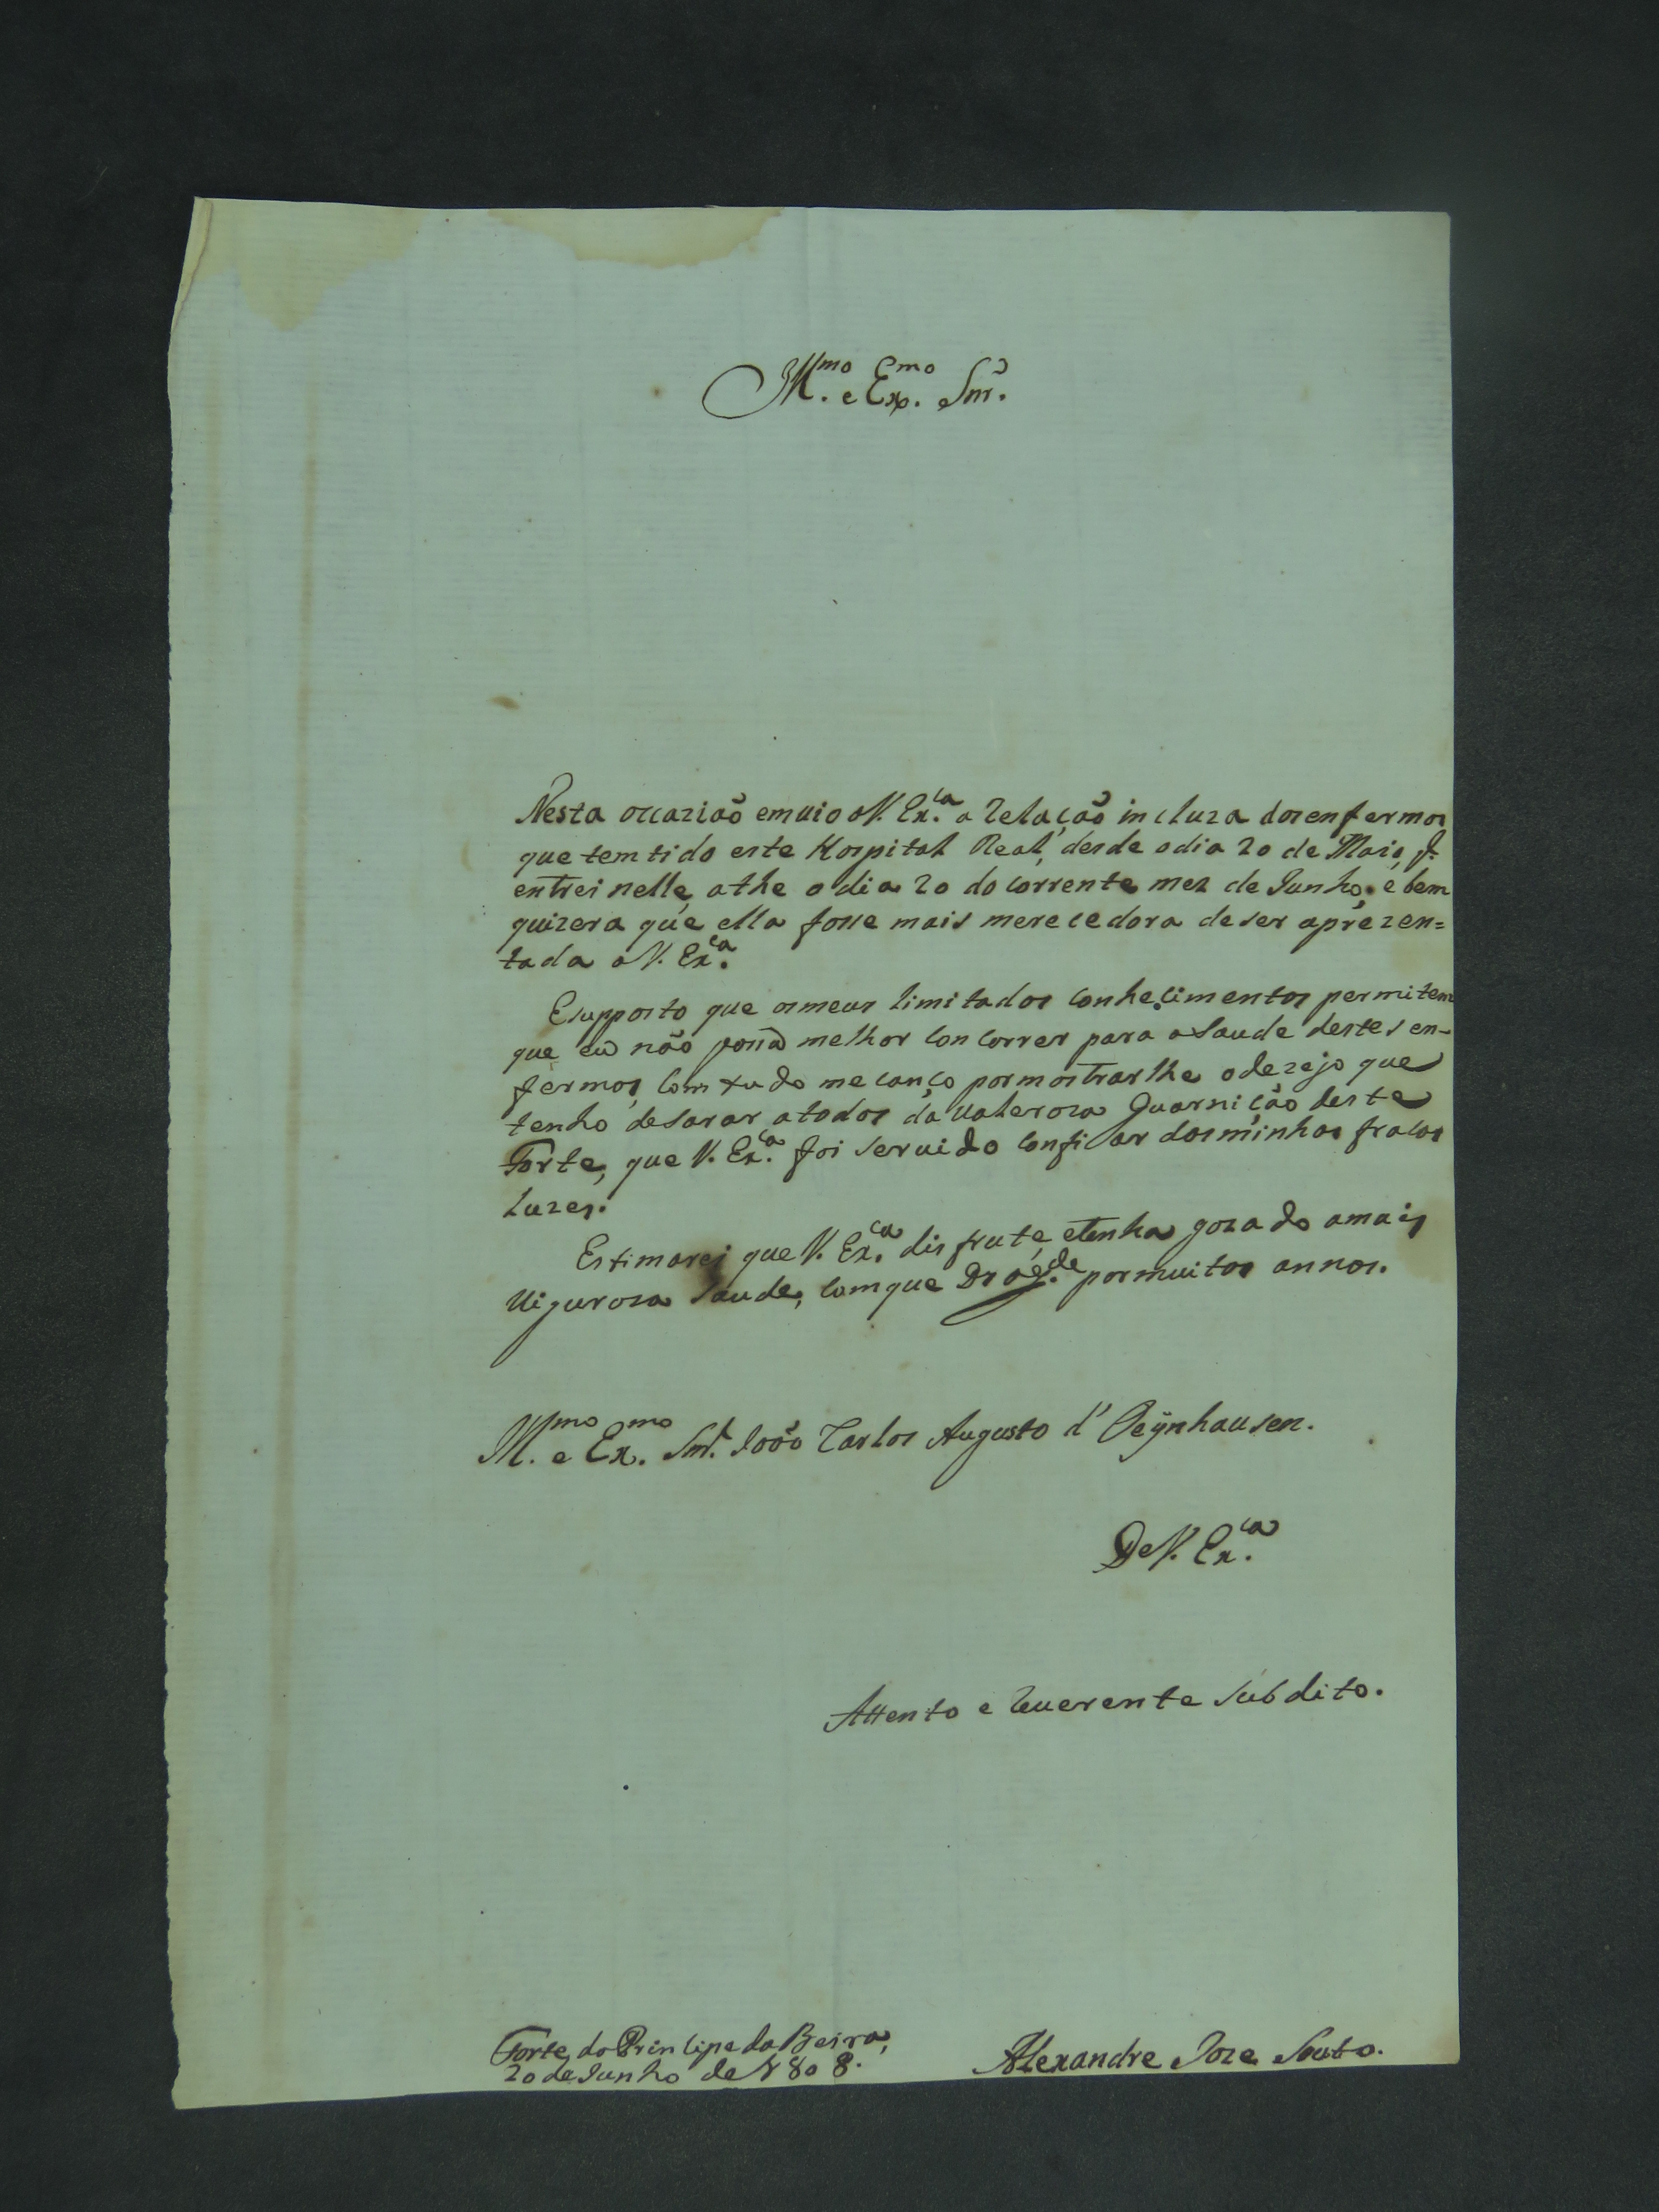 Ill.mo e Ex.mo Snr.
Nesta occazião emuio a V. Ex.ca a relação incluza dos enfermos
que tem tido este Hospital Real, desde o dia 20 de Maio, q.
entrei nelle, athe o dia 20 do corrente mez de Junho, e bem
quizera que ella fosse mais merecedora de ser aprezen=
tada a V. Ex.ca
E supposto que os meus limitados conhecimentos permitem
que eu não possa melhor concorrer para a Saude destes en-
fermos, com tudo me canço por mostrarlhe o dezejo que
tenho de sarar a todos da ualeroza Guarnição deste
Forte, que V. Ex.ca foi seruido confiar das minhas fracas
luzes.
Estimarei que V. Ex.ca disfrute, e tenha gozado a mais
uiguroza saude, com que Ds. a g.de por muitos annos.
Ill.mo e Ex.mo Snr. João Carlos Augusto d' Oeÿnhausen.
De V. Ex.ca
Attento e reuerente subdito.
Forte do Principe da Beira,
20 de Junho de 1808.
Alexandre Joze Souto.